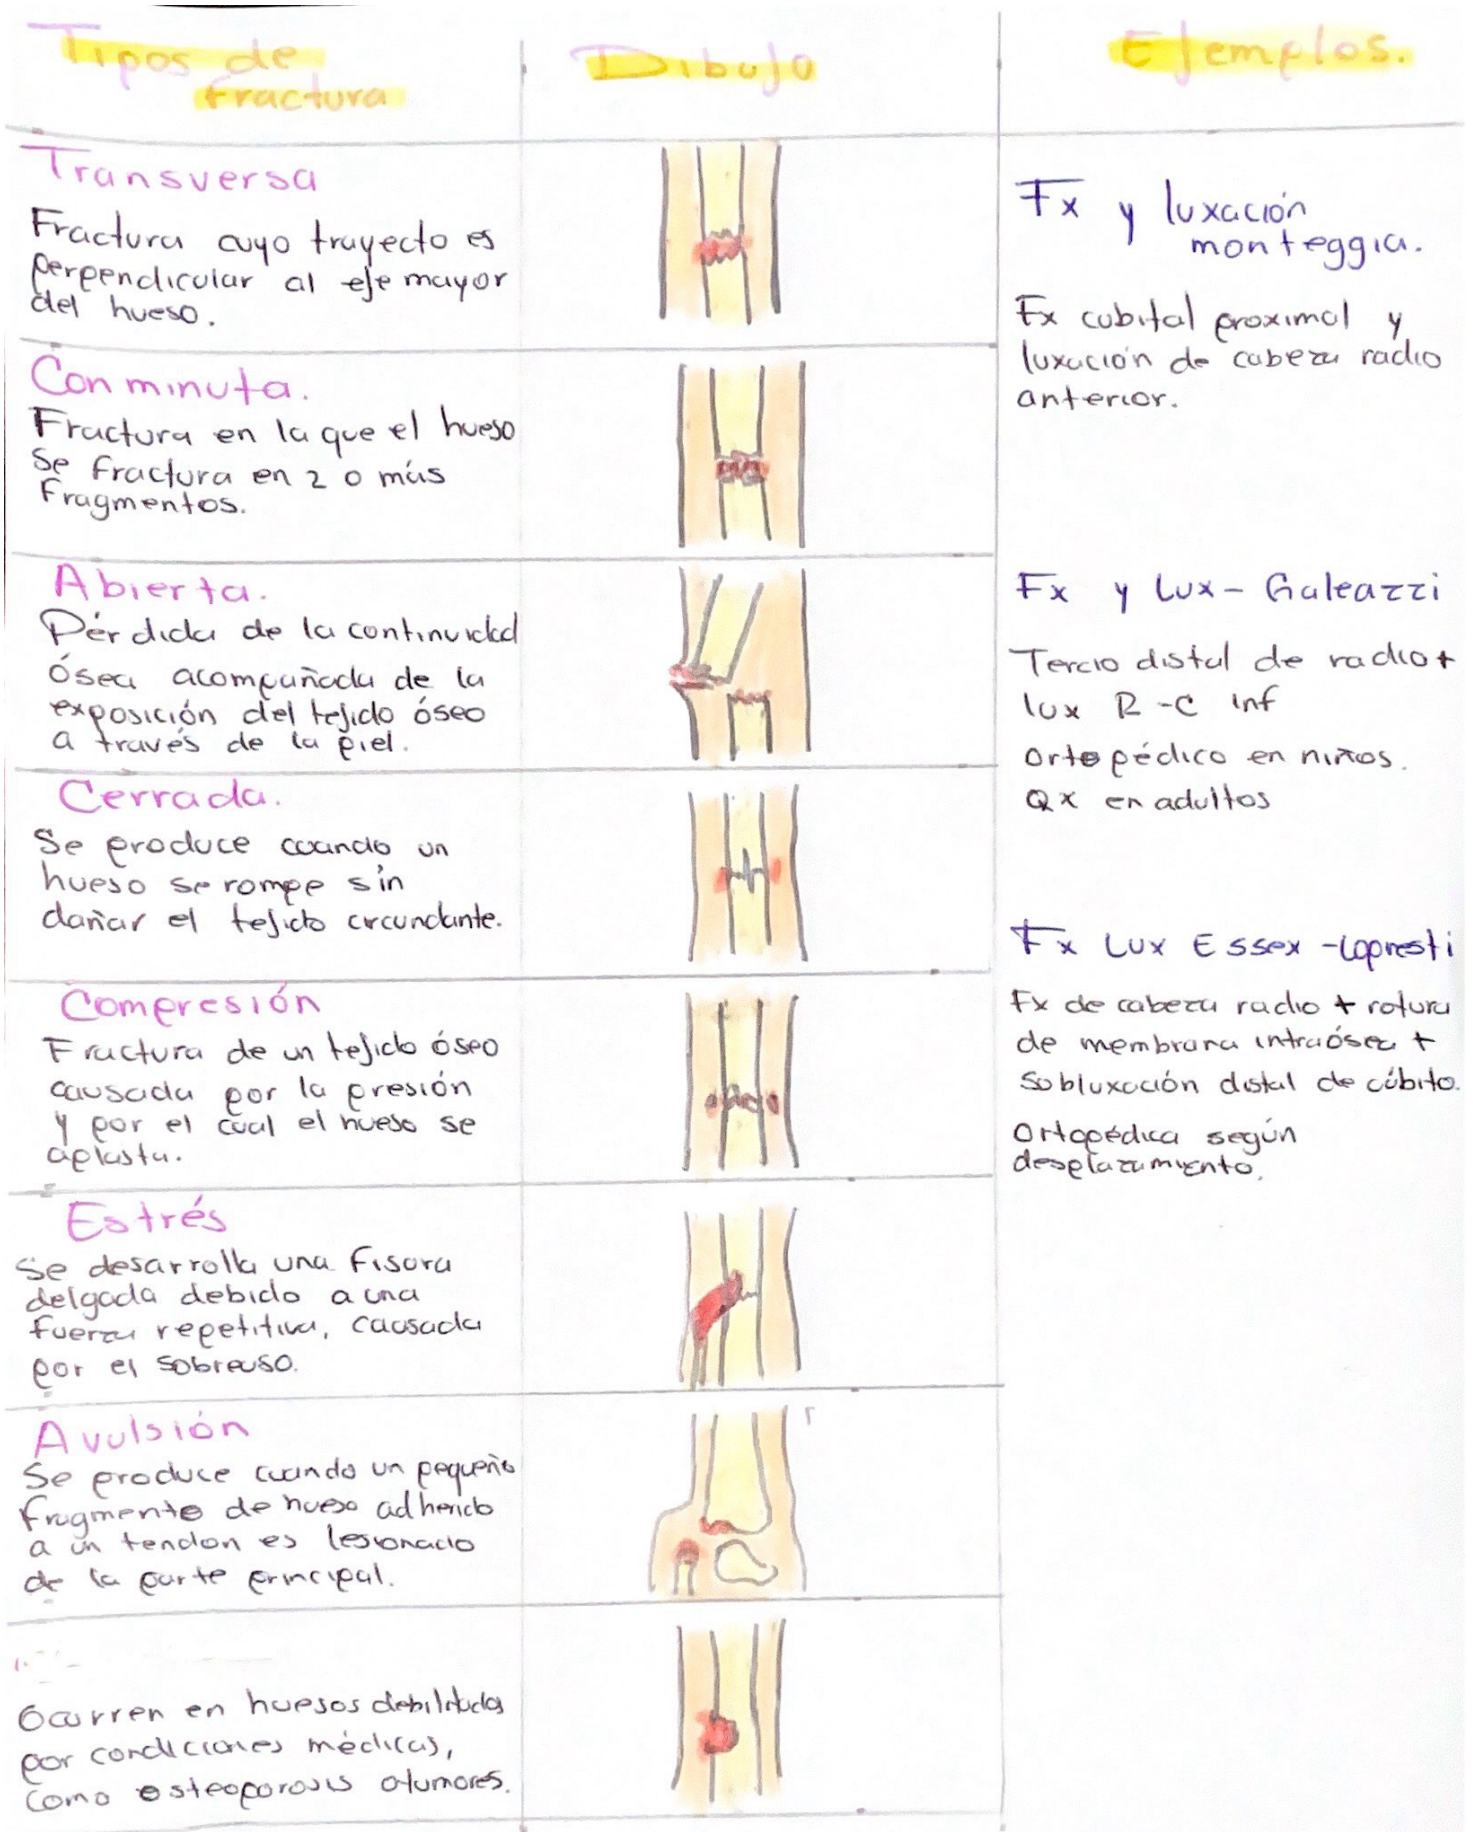 Tipos de
fractura
Dibujo
Ejemplos.
Transversa
Fractura cuyo trayecto es
perpendicular al eje mayor
del hueso.
Conminuta.
Fractura en la que el hueso
se fractura en 2 o más
fragmentos.
Abierta.
Pérdida de la continuidad
ósea acompañada de la
exposición del tejido óseo
a través de la piel.
Cerrada.
Se produce cuando un
hueso se rompe sin
dañar el tejido circundante.
Compresión
Fractura de un tejido óseo
causada por la presión
y por el cual el hueso se
aplasta.
Estrés
Se desarrolla una fisura
delgada debido a una
fuerza repetitiva, causada
por el sobreuso.
Avulsión
Se produce cuando un pequeño
fragmento de hueso adherido
a un tendon es lesionado
de la parte principal.
Ocurren en huesos debilitados
por condiciones médicas,
como osteoporosis o tumores.
Fx y luxación
monteggia.
Fx cubital proximal y
luxación de cabeza radio
anterior.
Fx y Lux - Galeazzi
Tercio distal de radio +
lux R-C inf
Ortopédico en niños.
Qx en adultos
Fx Lux Essex - Lopresti
Fx de cabeza radio + rotura
de membrana intraósea +
subluxación distal de cúbito.
Ortopédica según
desplazamiento.